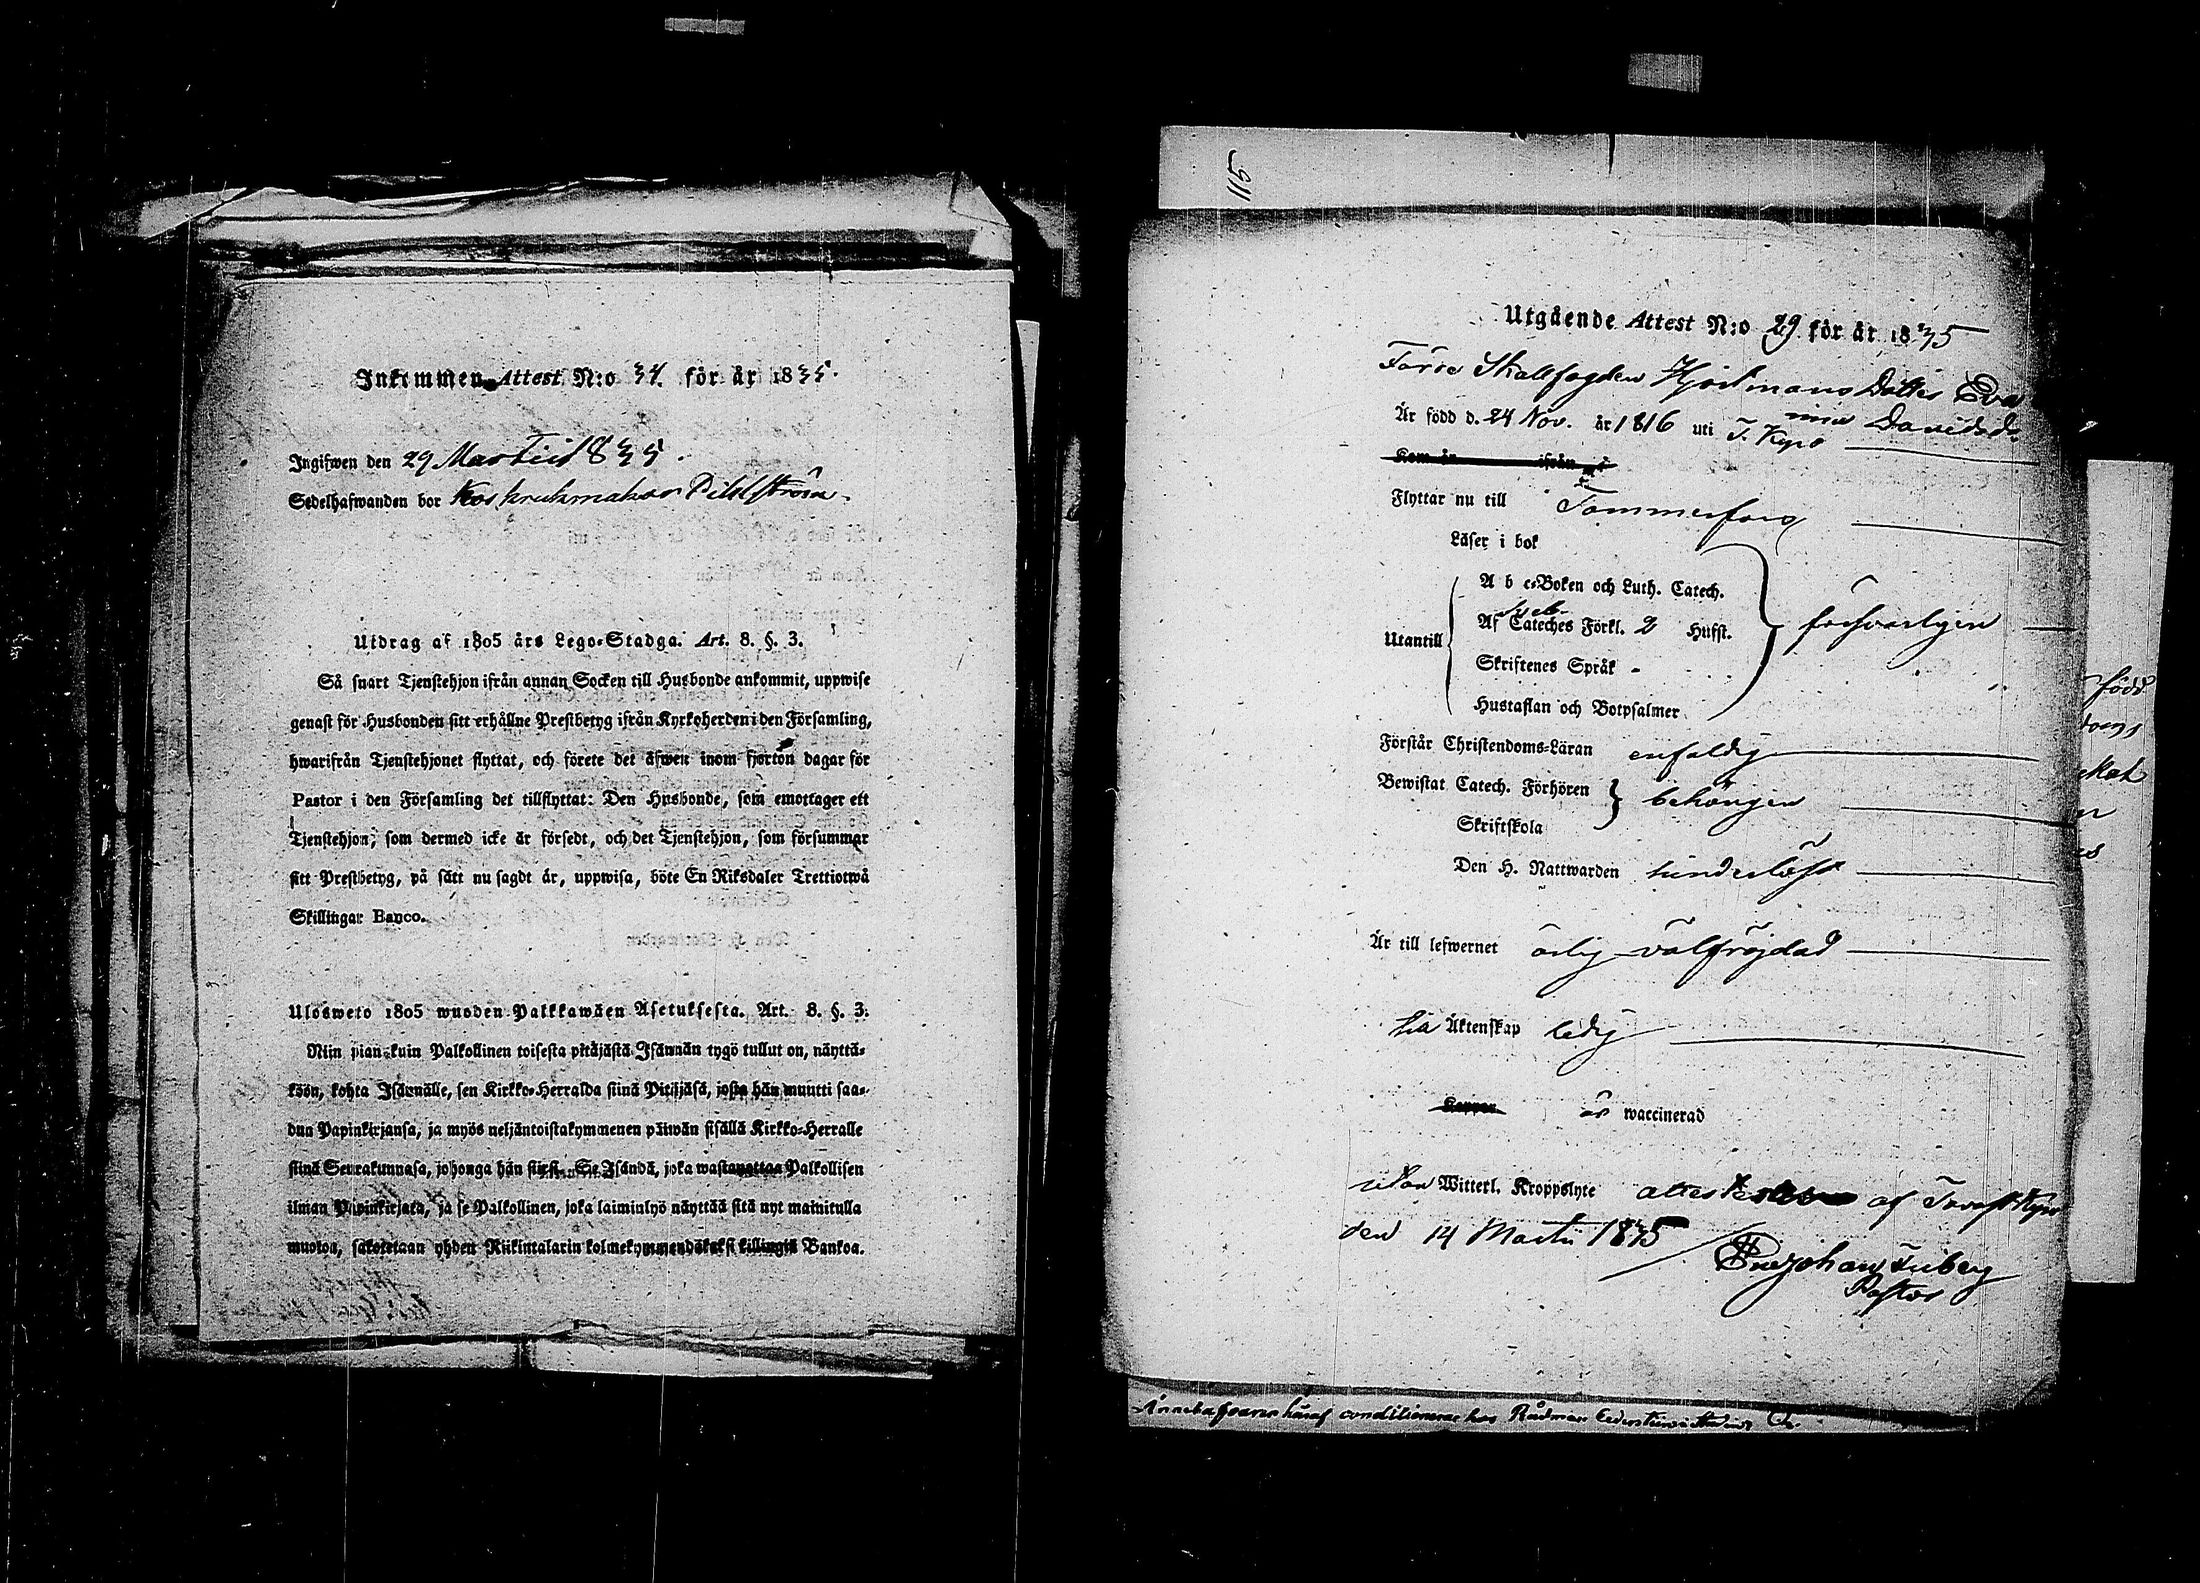 Inkommen Attest N:o 34. för år 1835.
Ingifwen den 29 Martii 1835.
Sedelhafwanden bor hos krukmakar
Utdrag af 1805 års Lego-Stadga. Art. 8. §. 3.
Så snart Tjenstehjon ifrån annan Socken till Husbonde ankommit, uppwise
genast för Husbonden sitt erhållne Prestbetyg ifrån Kyrkoherden i den Församling,
hwarifrån Tjenstehjonet flyttat, och förete det äfwen inom fjorton dagar för
Pastor i den Församling det tillflyttat: Den Husbonde, som emottager ett
Tjenstehjon, som dermed icke är försedt, och det Tjenstehjon, som försummar
sitt Prestbetyg, på sätt nu sagdt är, uppwisa, böte En Riksdaler Trettiotwå
Skillingar Banco.
Ulosweto 1805 wuoden Palkkawäen Asetuksesta. Art. 8. §. 3.
Niin pian kuin Palkollinen toisesta pitäjästä Isännän tygö tullut on, näyttä-
köön, kohta Isännälle, sen Kirkko-Herralda siinä Pitäjäsä, josta hän muutti saa-
dun Papinkirjansa, ja myös neljäntoistakymmenen päiwän sisällä Kirkko-Herralle
siinä Seurakunnasa, johonga hän siirsi. Se Isändä, joka wastanottaa Palkollisen
ilman Papinkirjata, ja se Palkollinen, joka laiminlyö näyttää sitä nyt mainitulla
muoton, sakotetaan yhden Riikintalarin kolmekymmendäkaksi killingiä Bankoa.
115
Utgående Attest N:o 29 för år 1835
Förre Skallfogden Hjortmans Dotter Eva
Är född d. 24 Nov. år 1816 uti T. Kyro Davidsdr
Kom år ifrån
Flyttar nu till Tammerfors
Läser i bok
A b c-Boken och Luth. Catech.
Utantill Af Sveb. Cateches Förkl. 2 Hufst. försvarligen
Skriftenes Språk -
Hustaflan och Botpsalmer
Förstår Christendoms-Läran enfaldig
Bewistat Catech. Förhören behörigen
Skriftskola
Den H. Nattwarden hinderlöst
Är till lefwernet ärlig välfrejdad
till Äktenskap ledig
Koppor är waccinerad
utan Witterl. Kroppslyte attesterar af Tavast Kyro
den 14 Martii 1835
Johan Friberg
Pastor
Innehafvaren häraf conditionerar hos Rådman
född